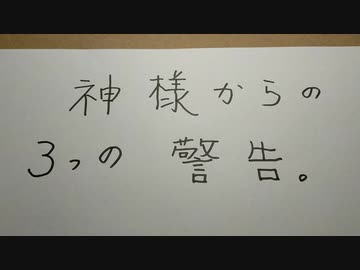 神様からの
3つの警告。